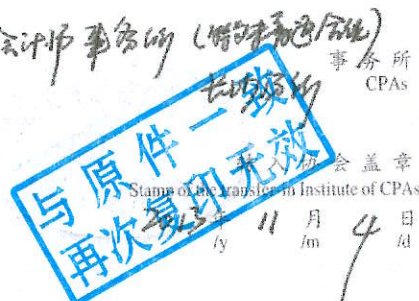 会计师事务所(特殊普通合伙)
事务所
CPAs
与原件一致
再次复印无效
转入协会盖章
Stamp of the transfer-in Institute of CPAs
2013年 11 月 4 日
/y /m /d